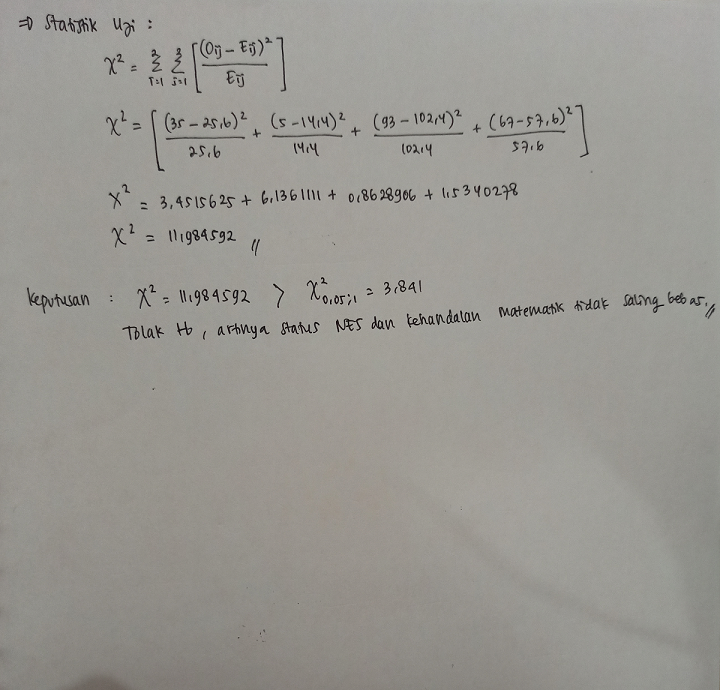 ⇒ Statistik Uji :
χ² = Σ²ᵢ₌₁ Σ³ⱼ₌₁ [(Oij - Eij)² / Eij]
χ² = [(35 - 25,6)² / 25,6 + (5 - 14,4)² / 14,4 + (93 - 102,4)² / 102,4 + (67 - 57,6)² / 57,6]
χ² = 3,4515625 + 6,1361111 + 0,8628906 + 1,5340278
χ² = 11,984592 //
Keputusan : χ² = 11,984592 > χ²0,05;1 = 3,841
Tolak H0, artinya status NES dan kehandalan matematik tidak saling bebas. //